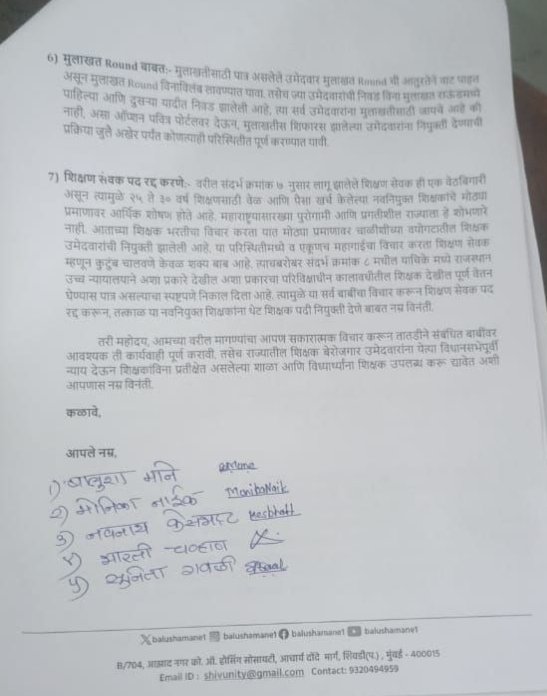 6) मुलाखत Round बाबत:- मुलाखतीसाठी पात्र असलेले उमेदवार मुलाखत Round ची आतुरतेने वाट पाहत
असून मुलाखत Round विनाविलंब लावण्यात यावा. तसेच ज्या उमेदवारांची निवड विना मुलाखत राऊंडमध्ये
पाहिल्या आणि दुसऱ्या यादीत निवड झालेली आहे, त्या सर्व उमेदवारांना मुलाखतीसाठी जायचे आहे की
नाही, असा ऑप्शन पवित्र पोर्टलवर देऊन, मुलाखतीस शिफारस झालेल्या उमेदवारांना नियुक्ती देण्याची
प्रक्रिया जुलै अखेर पर्यंत कोणत्याही परिस्थितीत पूर्ण करण्यात यावी.
7) शिक्षण सेवक पद रद्द करणे:- वरील संदर्भ क्रमांक ७ नुसार लागू झालेले शिक्षण सेवक ही एक वेठबिगारी
असून त्यामुळे २५ ते ३० वर्ष शिक्षणासाठी वेळ आणि पैसा खर्च केलेल्या नवनियुक्त शिक्षकांचे मोठ्या
प्रमाणावर आर्थिक शोषण होते आहे. महाराष्ट्रासारख्या पुरोगामी आणि प्रगतीशील राज्याला हे शोभणारे
नाही. आताच्या शिक्षक भरतीचा विचार करता यात मोठ्या प्रमाणावर चाळीशीच्या वयोगटातील शिक्षक
उमेदवारांची नियुक्ती झालेली आहे. या परिस्थितीमध्ये व एकूणच महागाईचा विचार करता शिक्षण सेवक
म्हणून कुटुंब चालवणे केवळ शक्य बाब आहे. त्याचबरोबर संदर्भ क्रमांक ८ मधील याचिके मध्ये राजस्थान
उच्च न्यायालयाने अशा प्रकारे देखील अशा प्रकारचा परिविक्षाधीन कालावधीतील शिक्षक देखील पूर्ण वेतन
घेण्यास पात्र असल्याचा स्पष्टपणे निकाल दिला आहे. त्यामुळे या सर्व बाबींचा विचार करून शिक्षण सेवक पद
रद्द करून, तत्काळ या नवनियुक्त शिक्षकांना थेट शिक्षक पदी नियुक्ती देणे बाबत नम्र विनंती.
तरी महोदय, आमच्या वरील मागण्यांचा आपण सकारात्मक विचार करून तातडीने संबंधित बाबींवर
आवश्यक ती कार्यवाही पूर्ण करावी. तसेच राज्यातील शिक्षक बेरोजगार उमेदवारांना येत्या विधानसभेपूर्वी
न्याय देऊन शिक्षकांविना प्रतीक्षेत असलेल्या शाळा आणि विद्यार्थ्यांना शिक्षक उपलब्ध करू द्यावेत अशी
आपणास नम्र विनंती.
कळावे,
आपले नम्र,
१) बाळुशा माने
२) मोनिका नाईक MonikaNaik
३) नवनाथ केसभट Kesbhatt
४) भारती चव्हाण
५) सुनिता गवळी
balushamane1 balushamane1 balushamane1 balushamane1
B/704, आझाद नगर को. ऑ. हौसिंग सोसायटी, आचार्य दोंदे मार्ग, शिवडी(प.) , मुंबई - 400015
Email ID : shivunity@gmail.com Contact: 9320494959